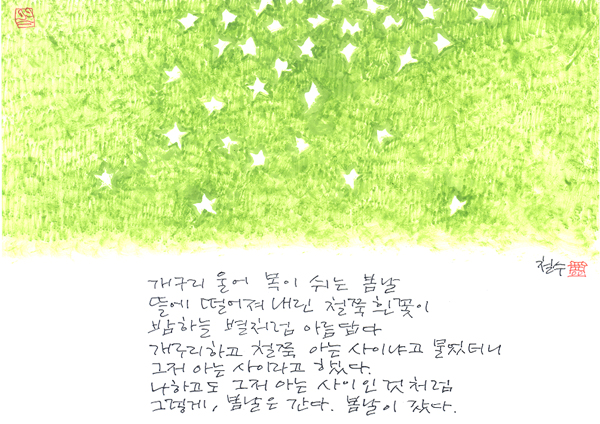 철수
개구리 울어 목이 쉬는 봄날
뜰에 떨어져 내린 철쭉 흰꽃이
밤하늘 별처럼 아름답다
개구리하고 철쭉 아는 사이냐고 물었더니
그저 아는 사이라고 했다.
나하고도 그저 아는 사이인것처럼
그렇게, 봄날은 간다. 봄날이 갔다.